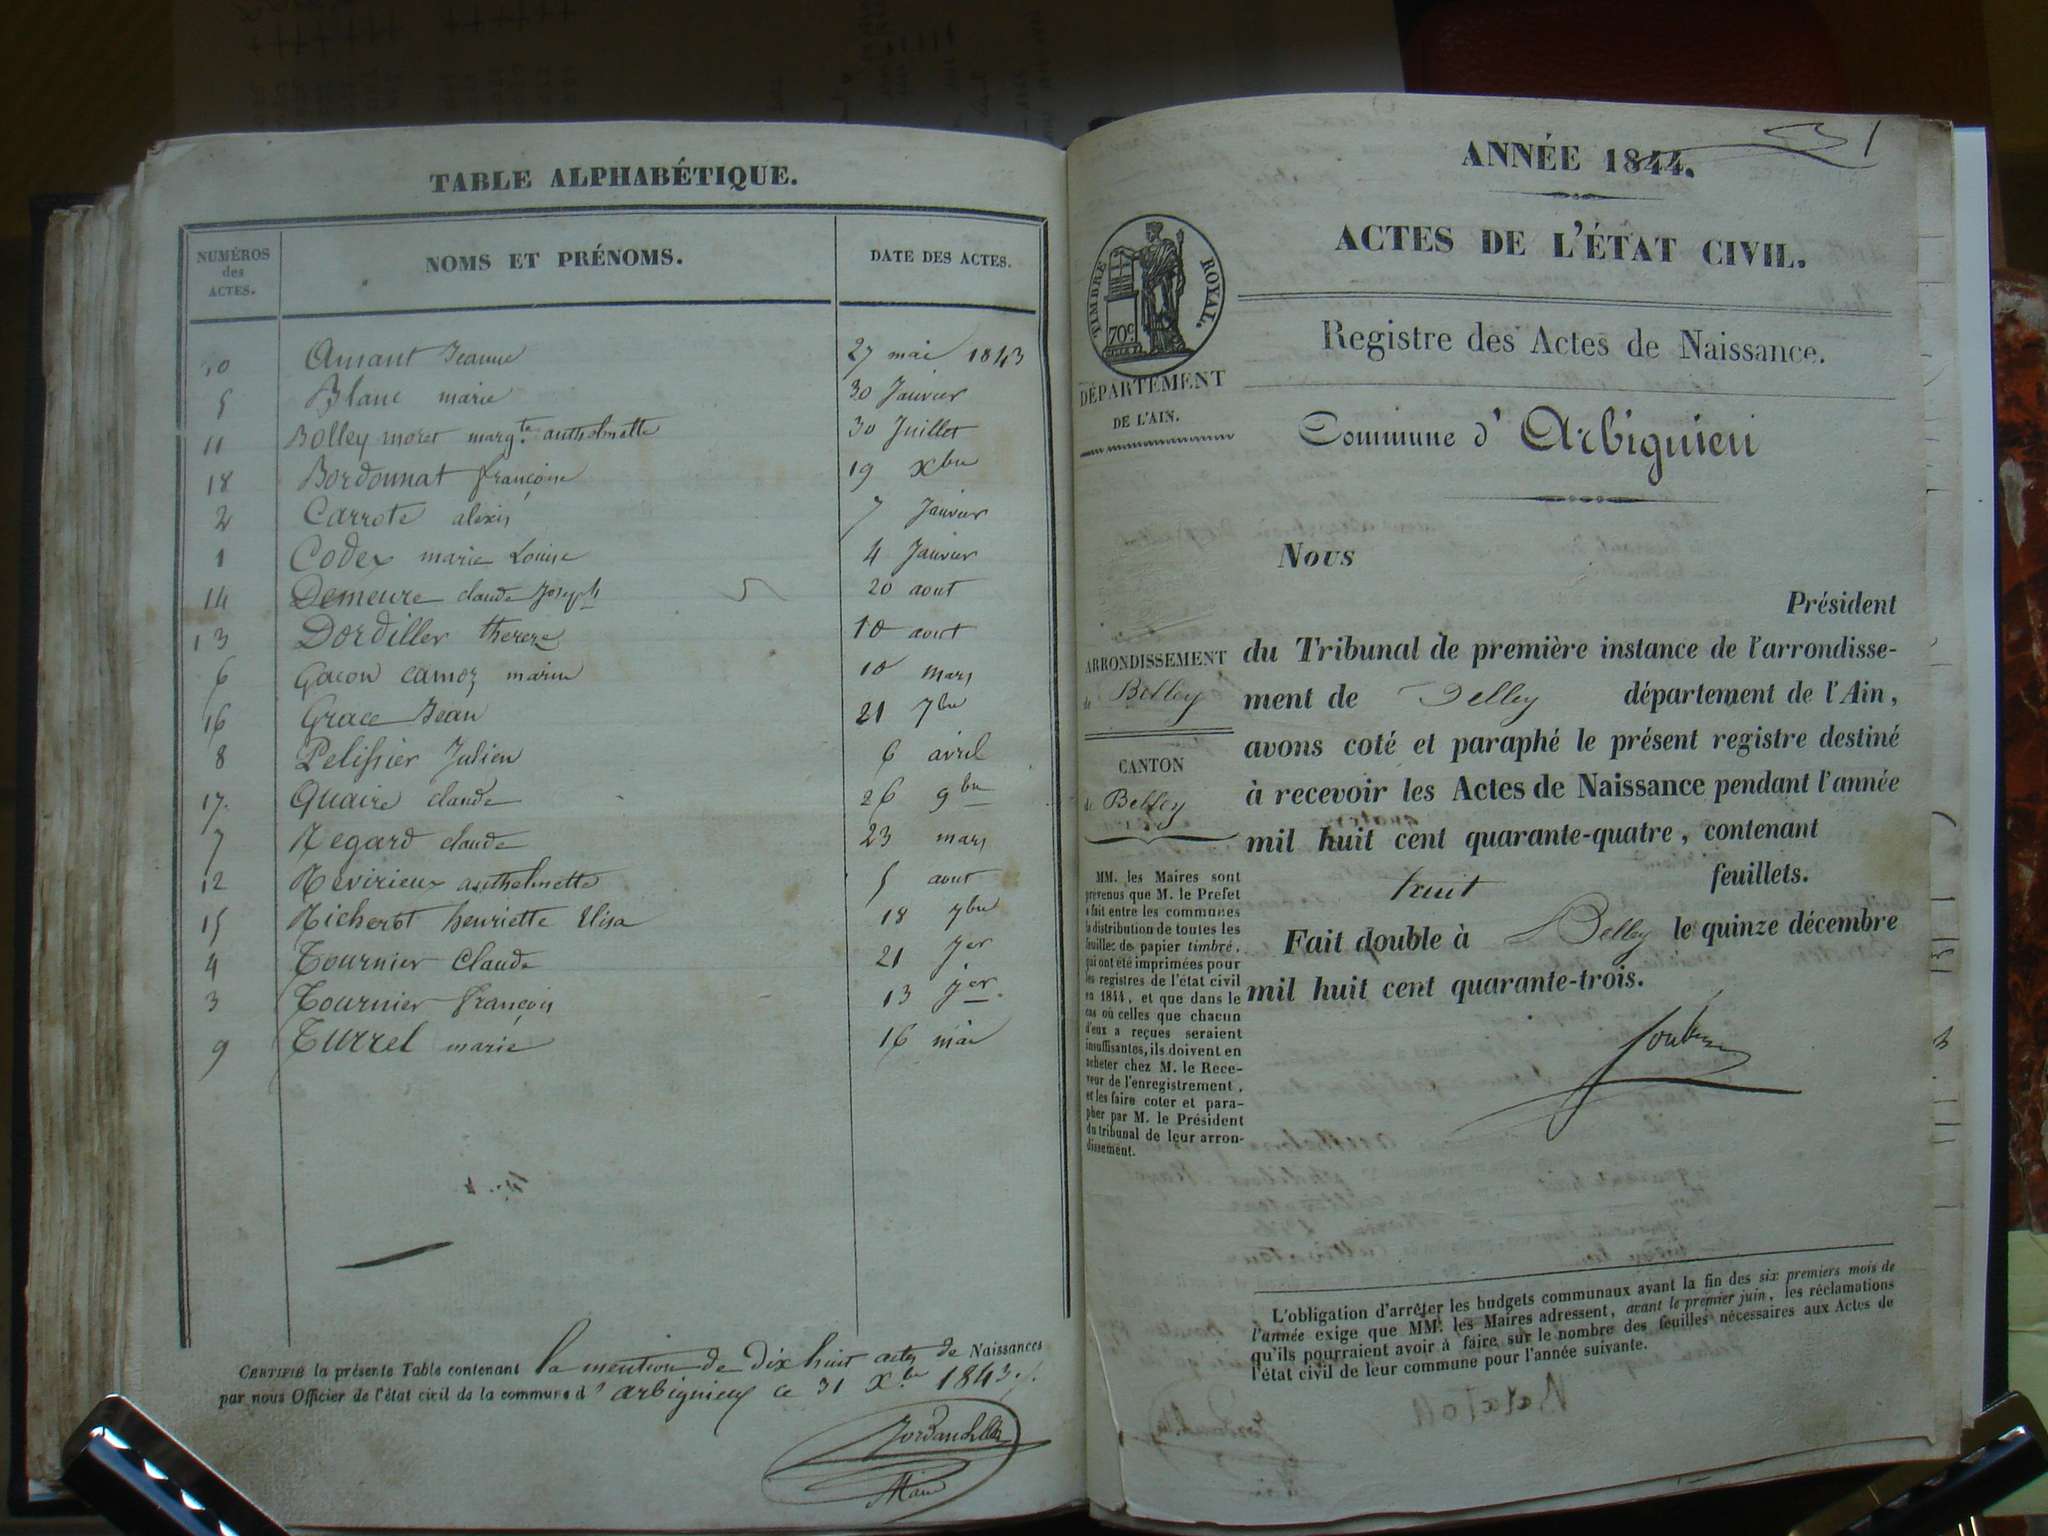 TABLE ALPHABÉTIQUE.
NUMÉROS
des
ACTES.
NOMS ET PRÉNOMS.
DATE DES ACTES.
10 Amant Jeanne 27 mai 1843
5 Blanc marie 30 Janvier
11 Bolley moret margte anthelmette 30 Juillet
18 Bordonnat françoise 19 Xbre
2 Carrote alexis 7 Janvier
1 Codex marie Louise 4 Janvier
14 Demeure claude Joseph 20 aout
13 Dordiller thereze 10 aout
6 Gacon camoz marie 10 mars
16 Grace Jean 21 7bre
8 Pelissier Julien 6 avril
17. Quaire claude 26 9bre
7 Regard claude 23 mars
12 Revirieux anthelmette 5 aout
15 Richerot henriette Elisa 18 7bre
4 Tournier Claude 21 Jer
3 Tournier françois 13 jer.
9 Turrel marie 16 mai
CERTIFIÉ la présente Table contenant la mention de dix huit actes de Naissances
par nous Officier de l'état civil de la commune d'arbignieu ce 31 Xbre 1843.
Maire
1
ANNÉE 1844.
ACTES DE L'ÉTAT CIVIL.
TIMBRE ROYAL.
70c
Registre des Actes de Naissance.
DÉPARTEMENT
DE L'AIN.
Commune d'Arbignieu
ARRONDISSEMENT
de Belley
CANTON
de Belley
MM. les Maires sont
prévenus que M. le Préfet
a fait entre les communes
la distribution de toutes les
feuilles de papier timbré,
qui ont été imprimées pour
les registres de l'état civil
en 1844, et que dans le
cas où celles que chacun
d'eux a reçues seraient
insuffisantes, ils doivent en
acheter chez M. le Rece-
veur de l'enregistrement,
et les faire coter et para-
pher par M. le Président
du tribunal de leur arron-
dissement.
Nous
Président
du Tribunal de première instance de l'arrondisse-
ment de Belley département de l'Ain,
avons coté et paraphé le présent registre destiné
à recevoir les Actes de Naissance pendant l'année
mil huit cent quarante-quatre, contenant
huit feuillets.
Fait double à Belley le quinze décembre
mil huit cent quarante-trois.
L'obligation d'arrêter les budgets communaux avant la fin des six premiers mois de
l'année exige que MM. les Maires adressent, avant le premier juin, les réclamations
qu'ils pourraient avoir à faire sur le nombre des feuilles nécessaires aux Actes de
l'état civil de leur commune pour l'année suivante.